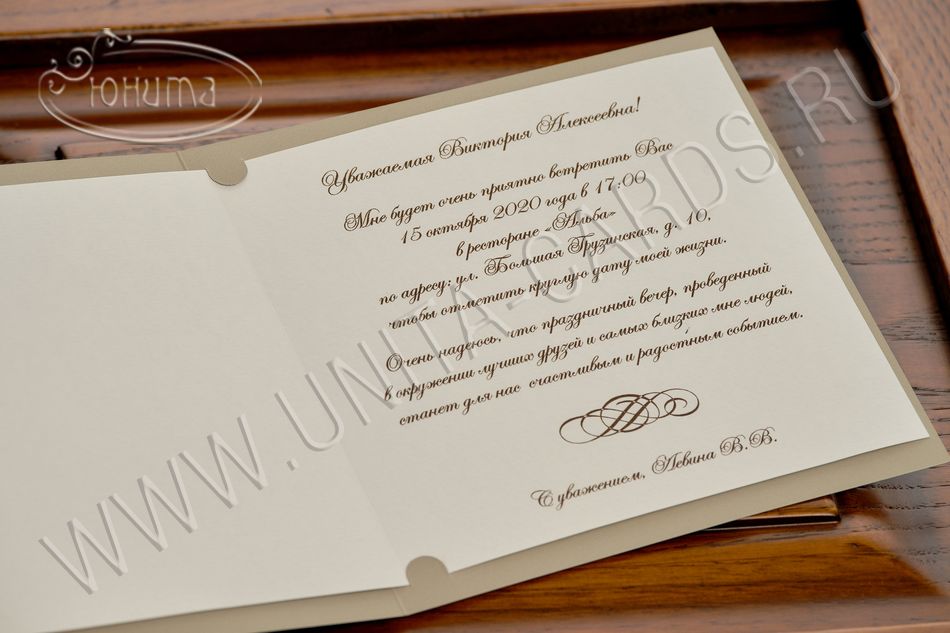 Юнита
Уважаемая Виктория Алексеевна!
Мне будет очень приятно встретить Вас
15 октября 2020 года в 17:00
в ресторане «Альба»
по адресу: ул. Большая Грузинская, д. 10,
чтобы отметить круглую дату моей жизни.
Очень надеюсь, что праздничный вечер, проведенный
в окружении лучших друзей и самых близких мне людей,
станет для нас счастливым и радостным событием.
С уважением, Левина В.В.
WWW.UNITA-CARDS.RU